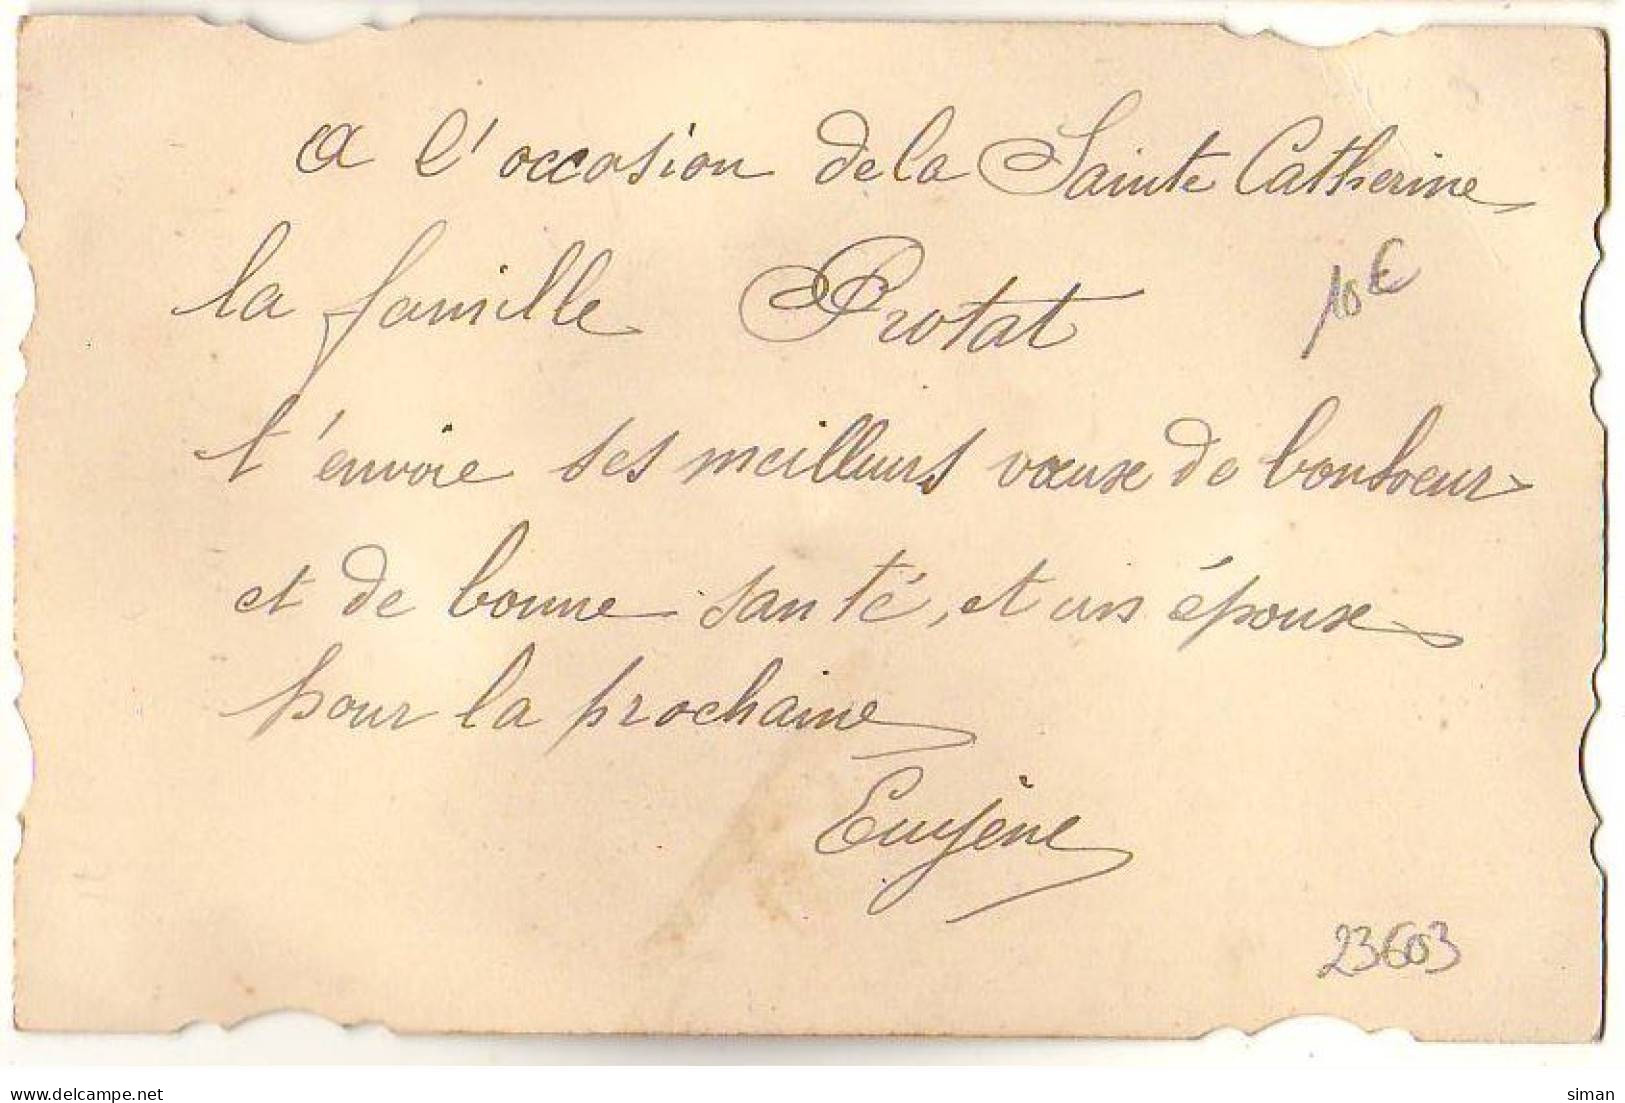 a l'occasion de la Sainte Catherine
la famille Protat
10€
t'envoie ses meilleurs vœux de bonheur
et de bonne santé, et un époux
pour la prochaine
Eugène
23603
www.delcampe.net
siman